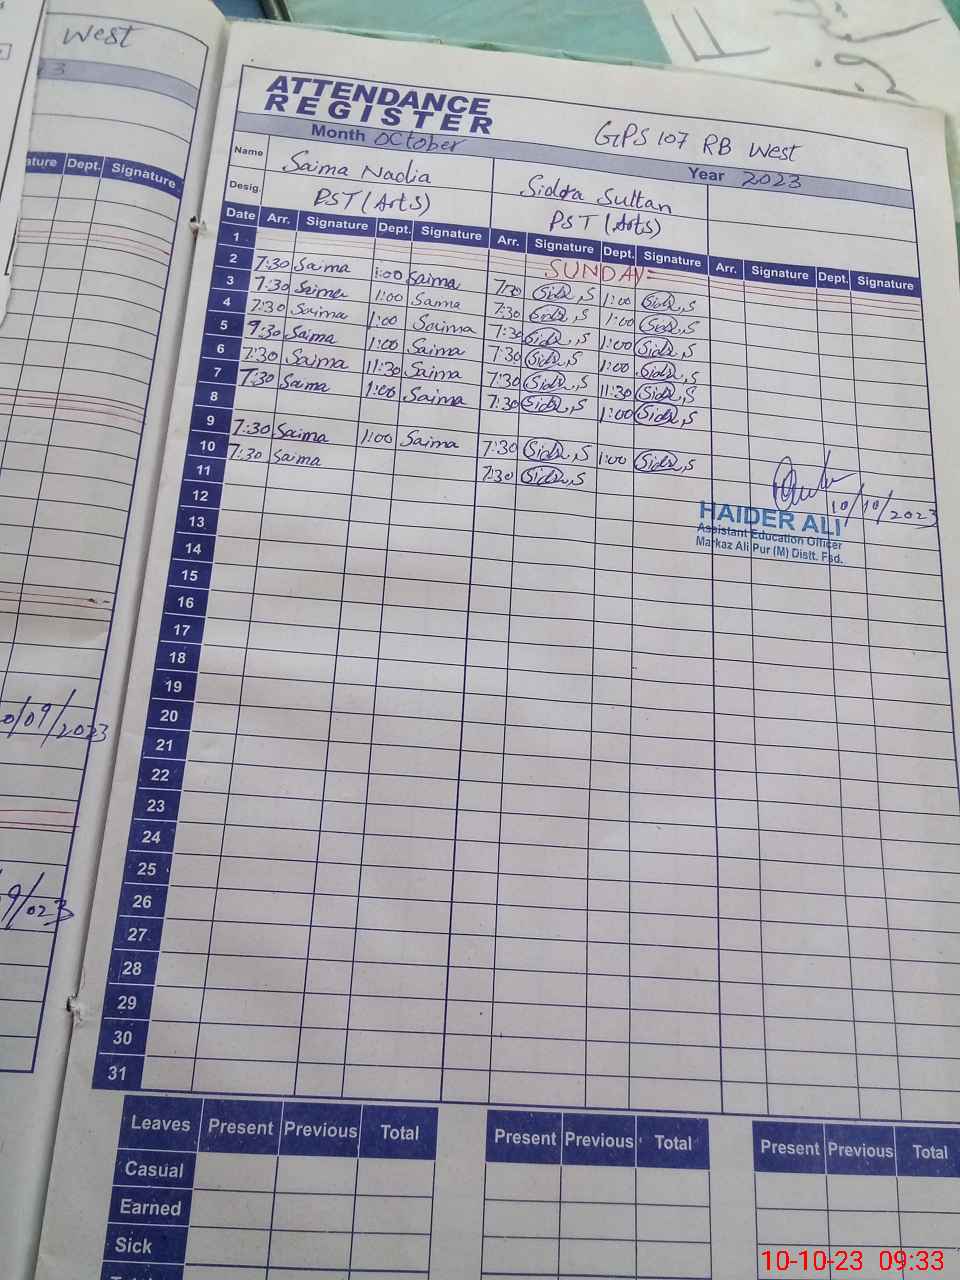 West
ATTENDANCE
REGISTER
GPS 107 RB West
Month October Year 2023
Name Saima Nadia Sidra Sultan
Desig. PST (Arts) PST (Arts)
Signature Dept. Signature
Date Arr. Signature Dept. Signature Arr. Signature Dept. Signature Arr. Signature Dept. Signature
1 SUNDAY
2 7:30 Saima 1:00 Saima 7:30 Sidr,S 1:00 Sidr,S
3 7:30 Saima 1:00 Saima 7:30 Sidr,S 1:00 Sidr,S
4 7:30 Saima 1:00 Saima 7:30 Sidr,S 1:00 Sidr,S
5 7:30 Saima 1:00 Saima 7:30 Sidr,S 1:00 Sidr,S
6 7:30 Saima 11:30 Saima 7:30 Sidr,S 11:30 Sidr,S
7 7:30 Saima 1:00 Saima 7:30 Sidr,S 1:00 Sidr,S
8
9 7:30 Saima 1:00 Saima 7:30 Sidr,S 1:00 Sidr,S
10 7:30 Saima 7:30 Sidr,S
10/10/2023
11
HAIDER ALI
Assistant Education Officer
Markaz Ali Pur (M) Distt. Fsd.
12
13
14
15
16
17
18
19
20
21
22
23
24
25
26
27
28
29
30
31
Leaves Present Previous Total Present Previous Total Present Previous Total
Casual
Earned
Sick
10-10-23 09:33